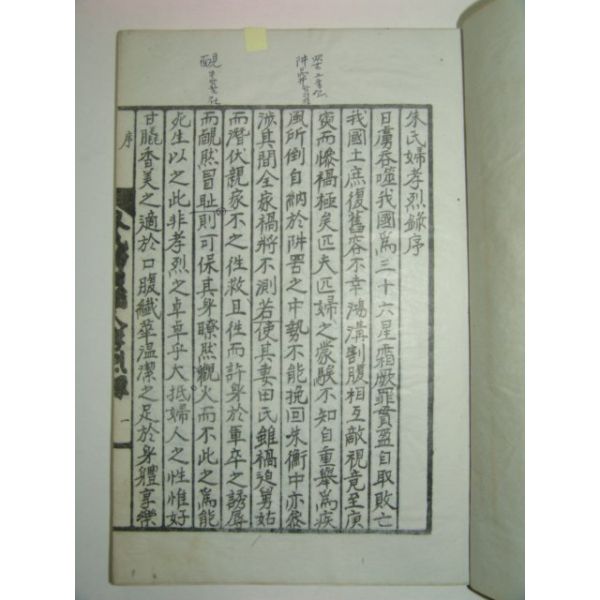 朱氏婦孝烈錄序
日虜吞噬我國爲三十六星霜厥罪貫盈自取敗亡
我國土庶復舊容不幸鴻溝割腹相互敵視竟至庚
寅而慘禍極矣匹夫匹婦之蒙騃不知自重擧爲疾
風所倒自納於阱罟之中勢不能挽回朱衡中亦參
涉其間全家禍將不測若使其妻田氏雖禍迫舅姑
而潛伏親家不之往救且往而許身於軍卒之誘辱
而靦然冒耻則可保其身瞭然觀火而不此之爲能
死生以之此非孝烈之卓卓乎大抵婦人之性惟好
甘脆香美之適於口腹纖華溫潔之足於身軆享樂
序
一